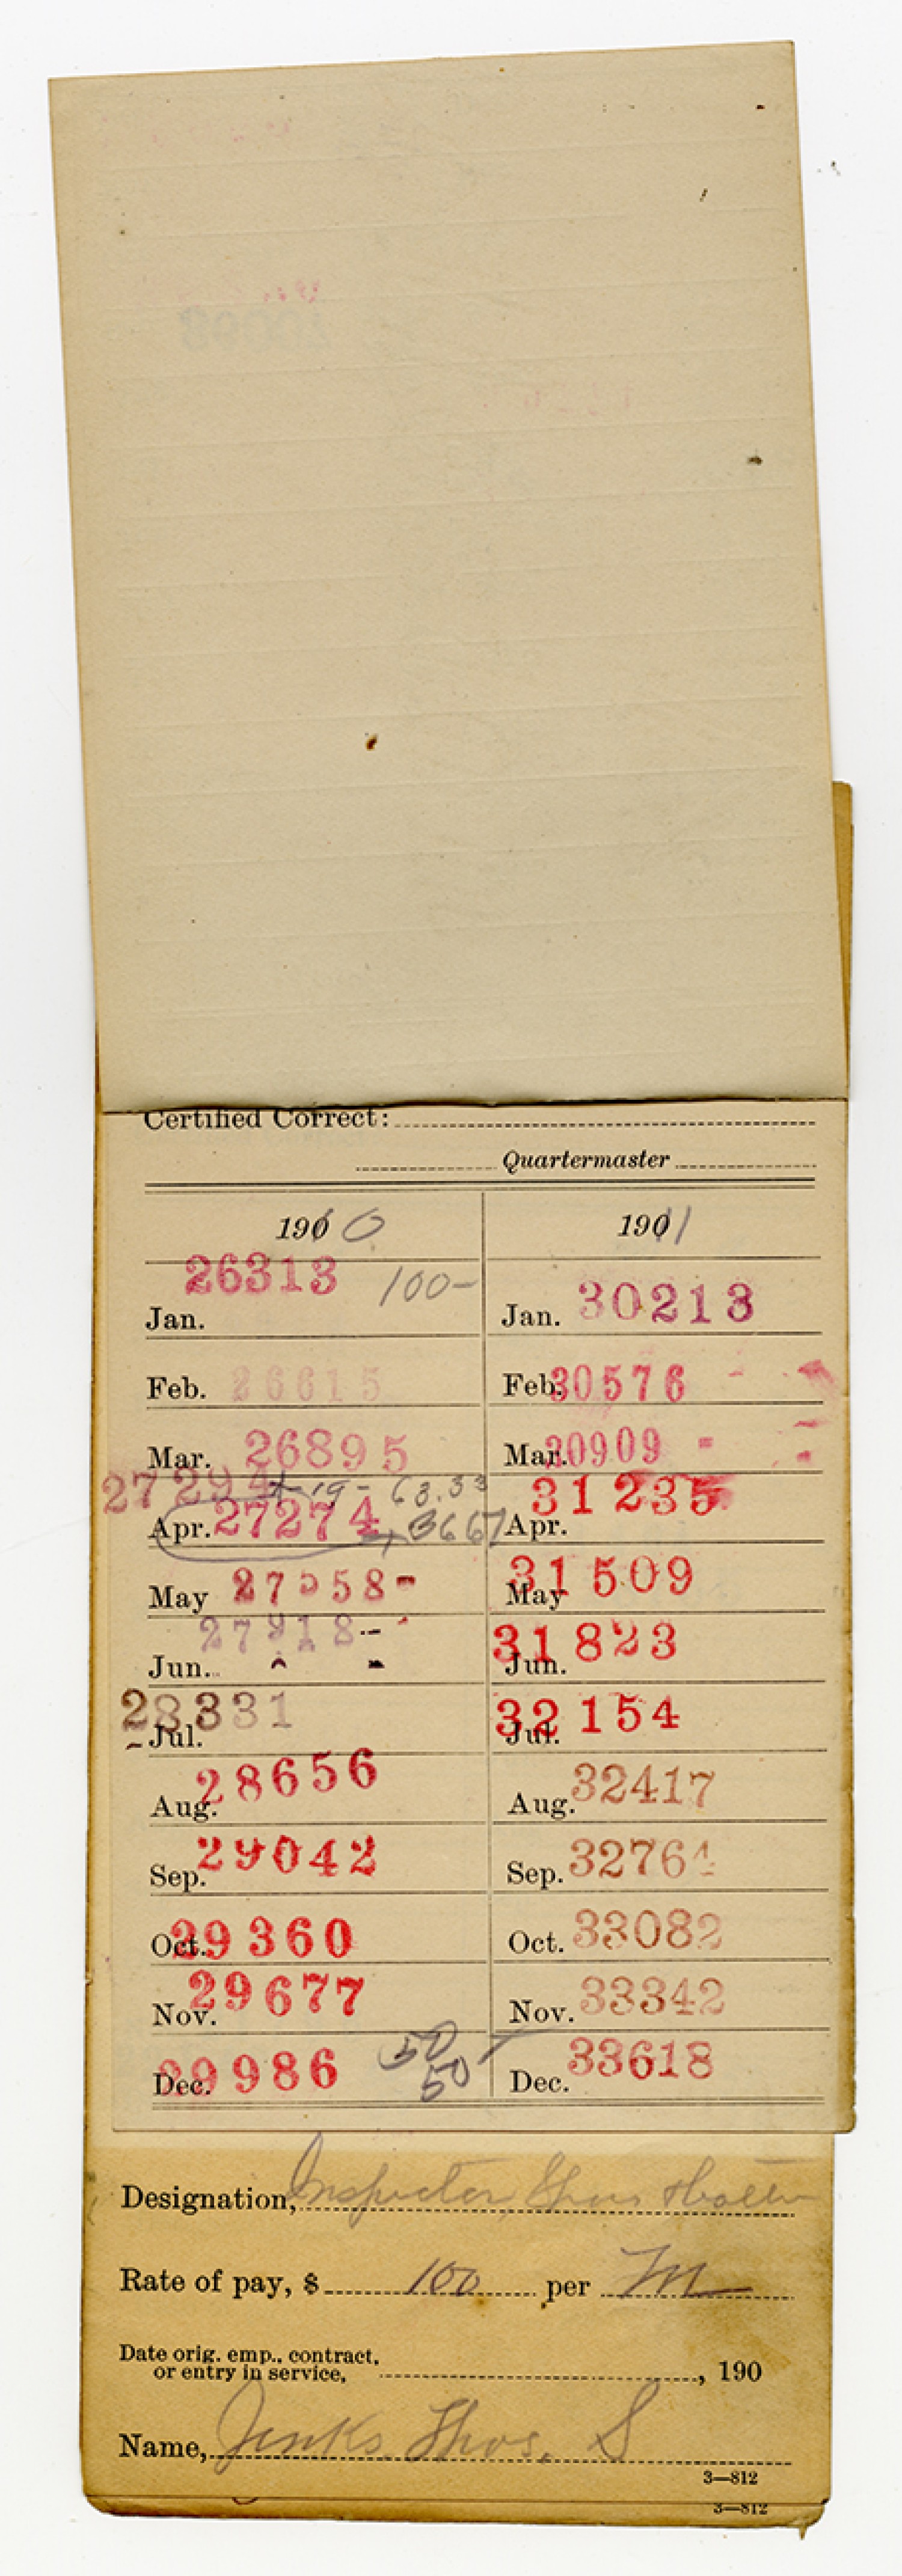 Certified Correct:
Quartermaster
190 0 1901
26313 100-
Jan. Jan. 30213
Feb. 26615 Feb. 30576
Mar. 26895 Mar. 30909
27294 19- 63.33 31235
Apr. 27274 3667 Apr.
May 27558- May 31509
27918-- 31823
Jun. Jun.
28331 32154
Jul. Jul.
Aug. 28656 Aug. 32417
Sep. 29042 Sep. 32764
Oct. 29360 Oct. 33082
Nov. 29677 Nov. 33342
Dec. 29986 50 Dec. 33618
50
Designation, Inspector,
Rate of pay, $ 100 per M
Date orig. emp., contract,
or entry in service, , 190
Name, Jenks, Thos. S
3—812
3—812